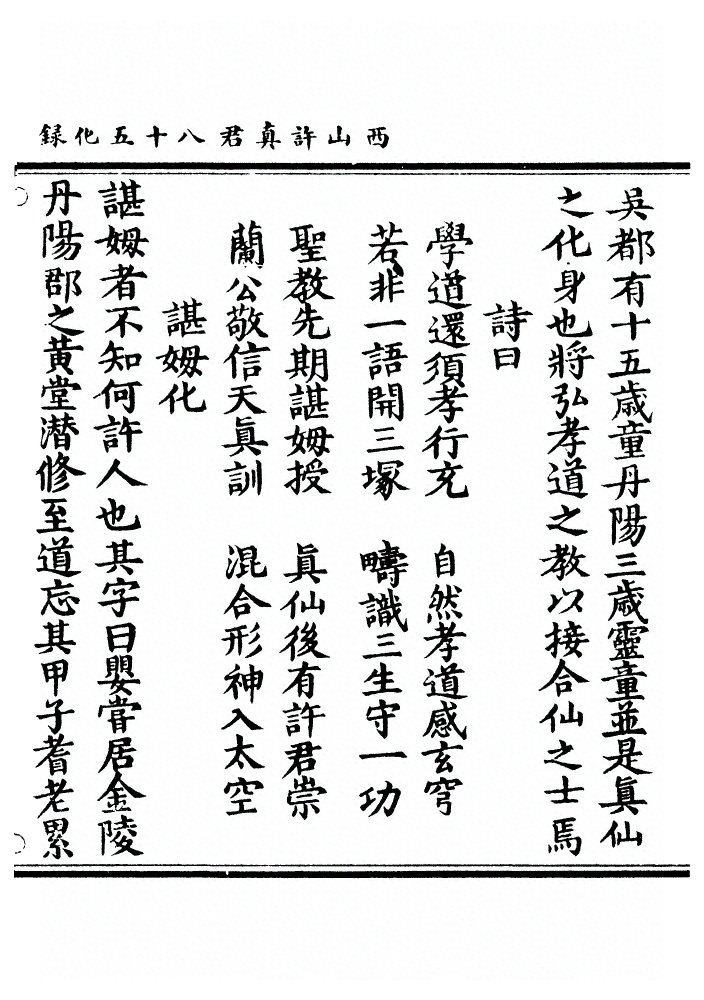 西山許真君八十五化録
吳都有十五歳童丹陽三歳靈童並是眞仙
之化身也將弘孝道之教以接合仙之士焉
詩曰
學道還須孝行充　自然孝道感玄穹
若非一語開三塚　疇識三生守一功
聖教先期諶姆授　眞仙後有許君崇
蘭公敬信天眞訓　混合形神入太空
諶姆化
諶姆者不知何許人也其字曰嬰甞居金陵
丹陽郡之黃堂潜修至道忘其甲子耆老累